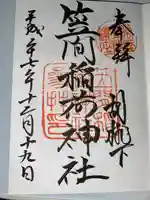 奉拝
胡桃下
笠間稲荷神社
平成廿七年十二月十九日